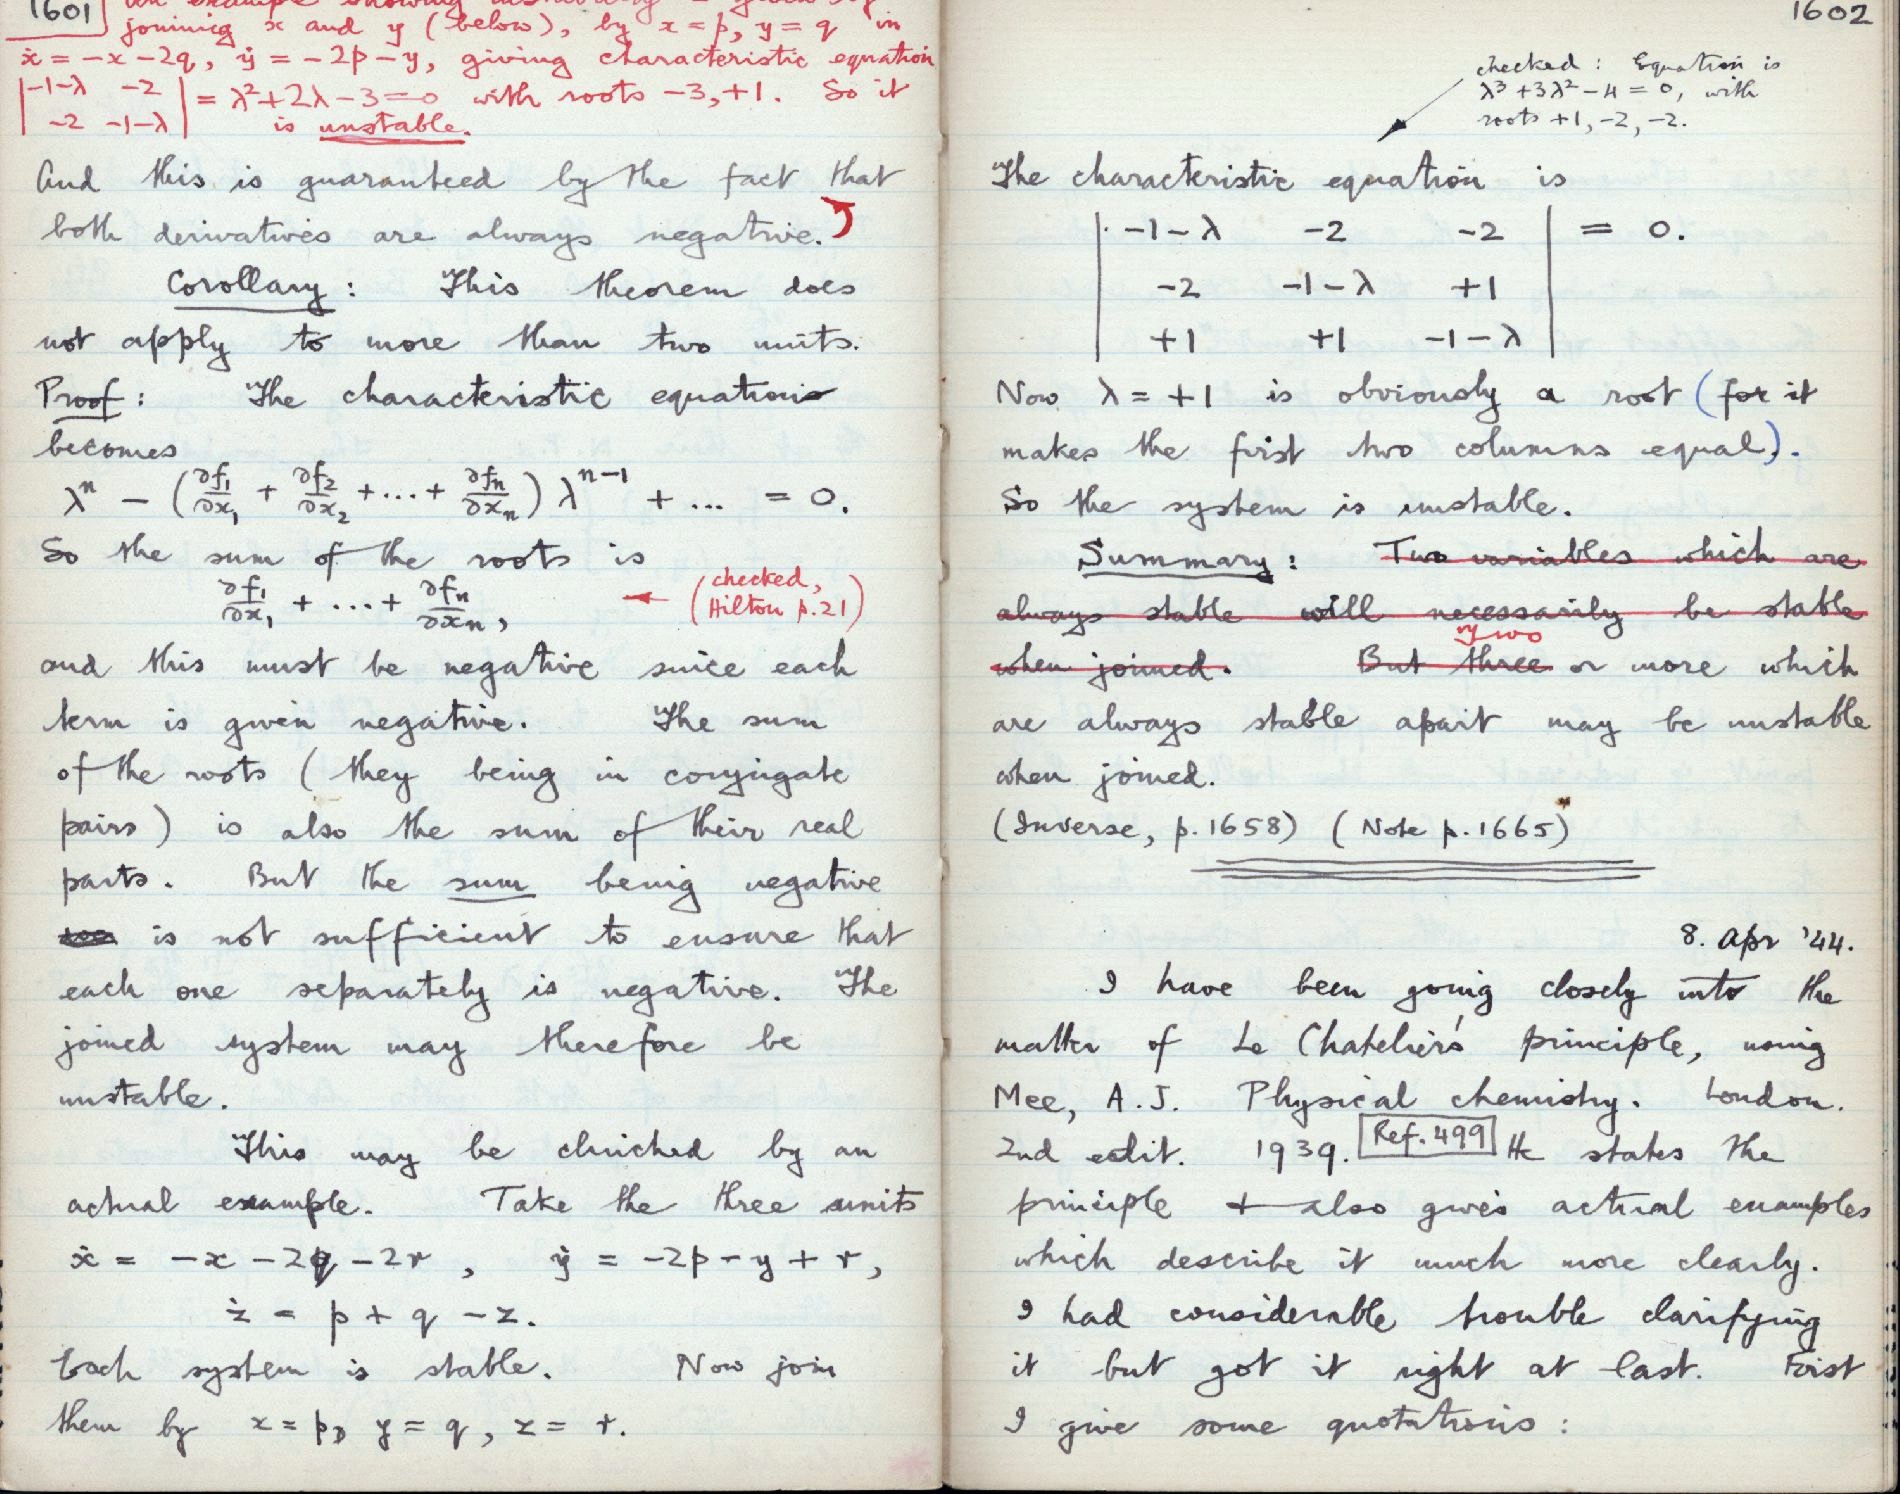 1601
an example showing instability is given by
joining x and y (below), by x = p, y = q in
ẋ = -x - 2q, ẏ = -2p - y, giving characteristic equation
| -1-λ -2 | = λ² + 2λ - 3 = 0 with roots -3, +1. So it
| -2 -1-λ | is unstable.
And this is guaranteed by the fact that
both derivatives are always negative.
Corollary: This theorem does
not apply to more than two units.
Proof: The characteristic equation
becomes
λⁿ - (∂f₁/∂x₁ + ∂f₂/∂x₂ + ... + ∂fₙ/∂xₙ) λⁿ⁻¹ + ... = 0.
So the sum of the roots is
∂f₁/∂x₁ + ... + ∂fₙ/∂xₙ, ← (checked,
Hilton p.21)
and this must be negative since each
term is given negative. The sum
of the roots (they being in conjugate
pairs) is also the sum of their real
parts. But the sum being negative
is not sufficient to ensure that
each one separately is negative. The
joined system may therefore be
unstable.
This may be clinched by an
actual example. Take the three units
ẋ = -x - 2q - 2r, ẏ = -2p - y + r,
ż = p + q - z.
Each system is stable. Now join
them by x = p, y = q, z = r.
1602
checked: Equation is
λ³ + 3λ² - 4 = 0, with
roots +1, -2, -2.
The characteristic equation is
| -1-λ -2 -2 | = 0.
| -2 -1-λ +1 |
| +1 +1 -1-λ |
Now λ = +1 is obviously a root (for it
makes the first two columns equal).
So the system is unstable.
Summary: Two variables which are
always stable will necessarily be stable
Two
when joined. But three or more which
are always stable apart may be unstable
when joined.
(Inverse, p.1658) (Note p.1665)
8. Apr '44.
I have been going closely into the
matter of Le Chatelier's principle, using
Mee, A.J. Physical chemistry. London.
2nd edit. 1939. Ref. 499 He states the
principle + also gives actual examples
which describe it much more clearly.
I had considerable trouble clarifying
it but got it right at last. First
I give some quotations: